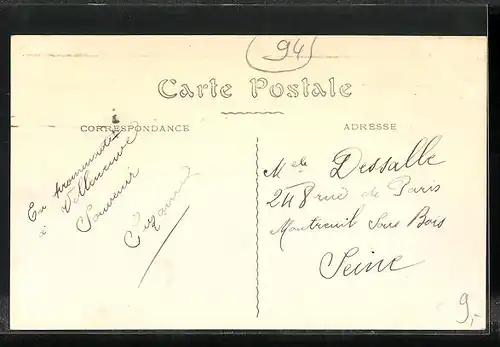 94
Carte Postale
CORRESPONDANCE
ADRESSE
En promenade
à Villeneuve
Souvenir
Melle Dessalle
248 rue de Paris
Montreuil Sous Bois
Seine
9,-